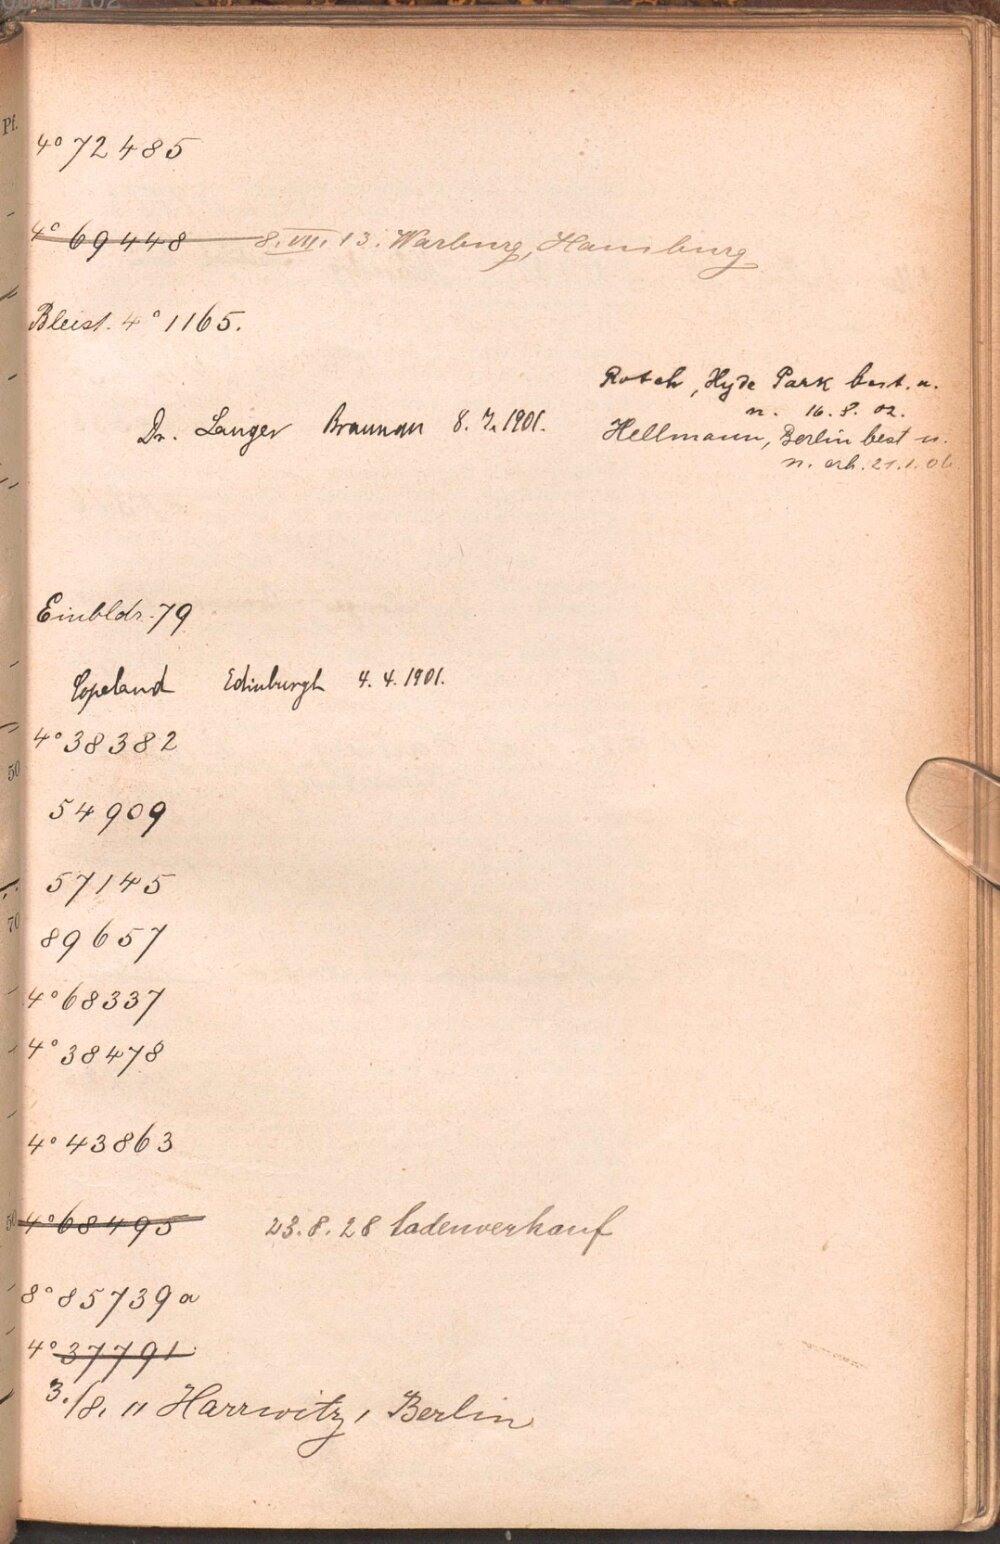 4° 72485
4° 69448 8. VIII. 13. Warburg, Hamburg
Bleist. 4° 1165.
Rotch, Hyde Park best. u.
n. 16. 8. 02.
Dr. Langer Braunau 8. 7. 1901.
Hellmann, Berlin best u.
n. erh. 21. 1. 06
Einbldr. 79
Copeland Edinburgh 4. 4. 1901.
4° 38382
54909
57145
89657
4° 68337
4° 38478
4° 43863
4° 68495 23. 8. 28 Ladenverkauf
8° 85739 a
4° 37791
3./8. 11 Harrwitz, Berlin
Pf.
50
70
50